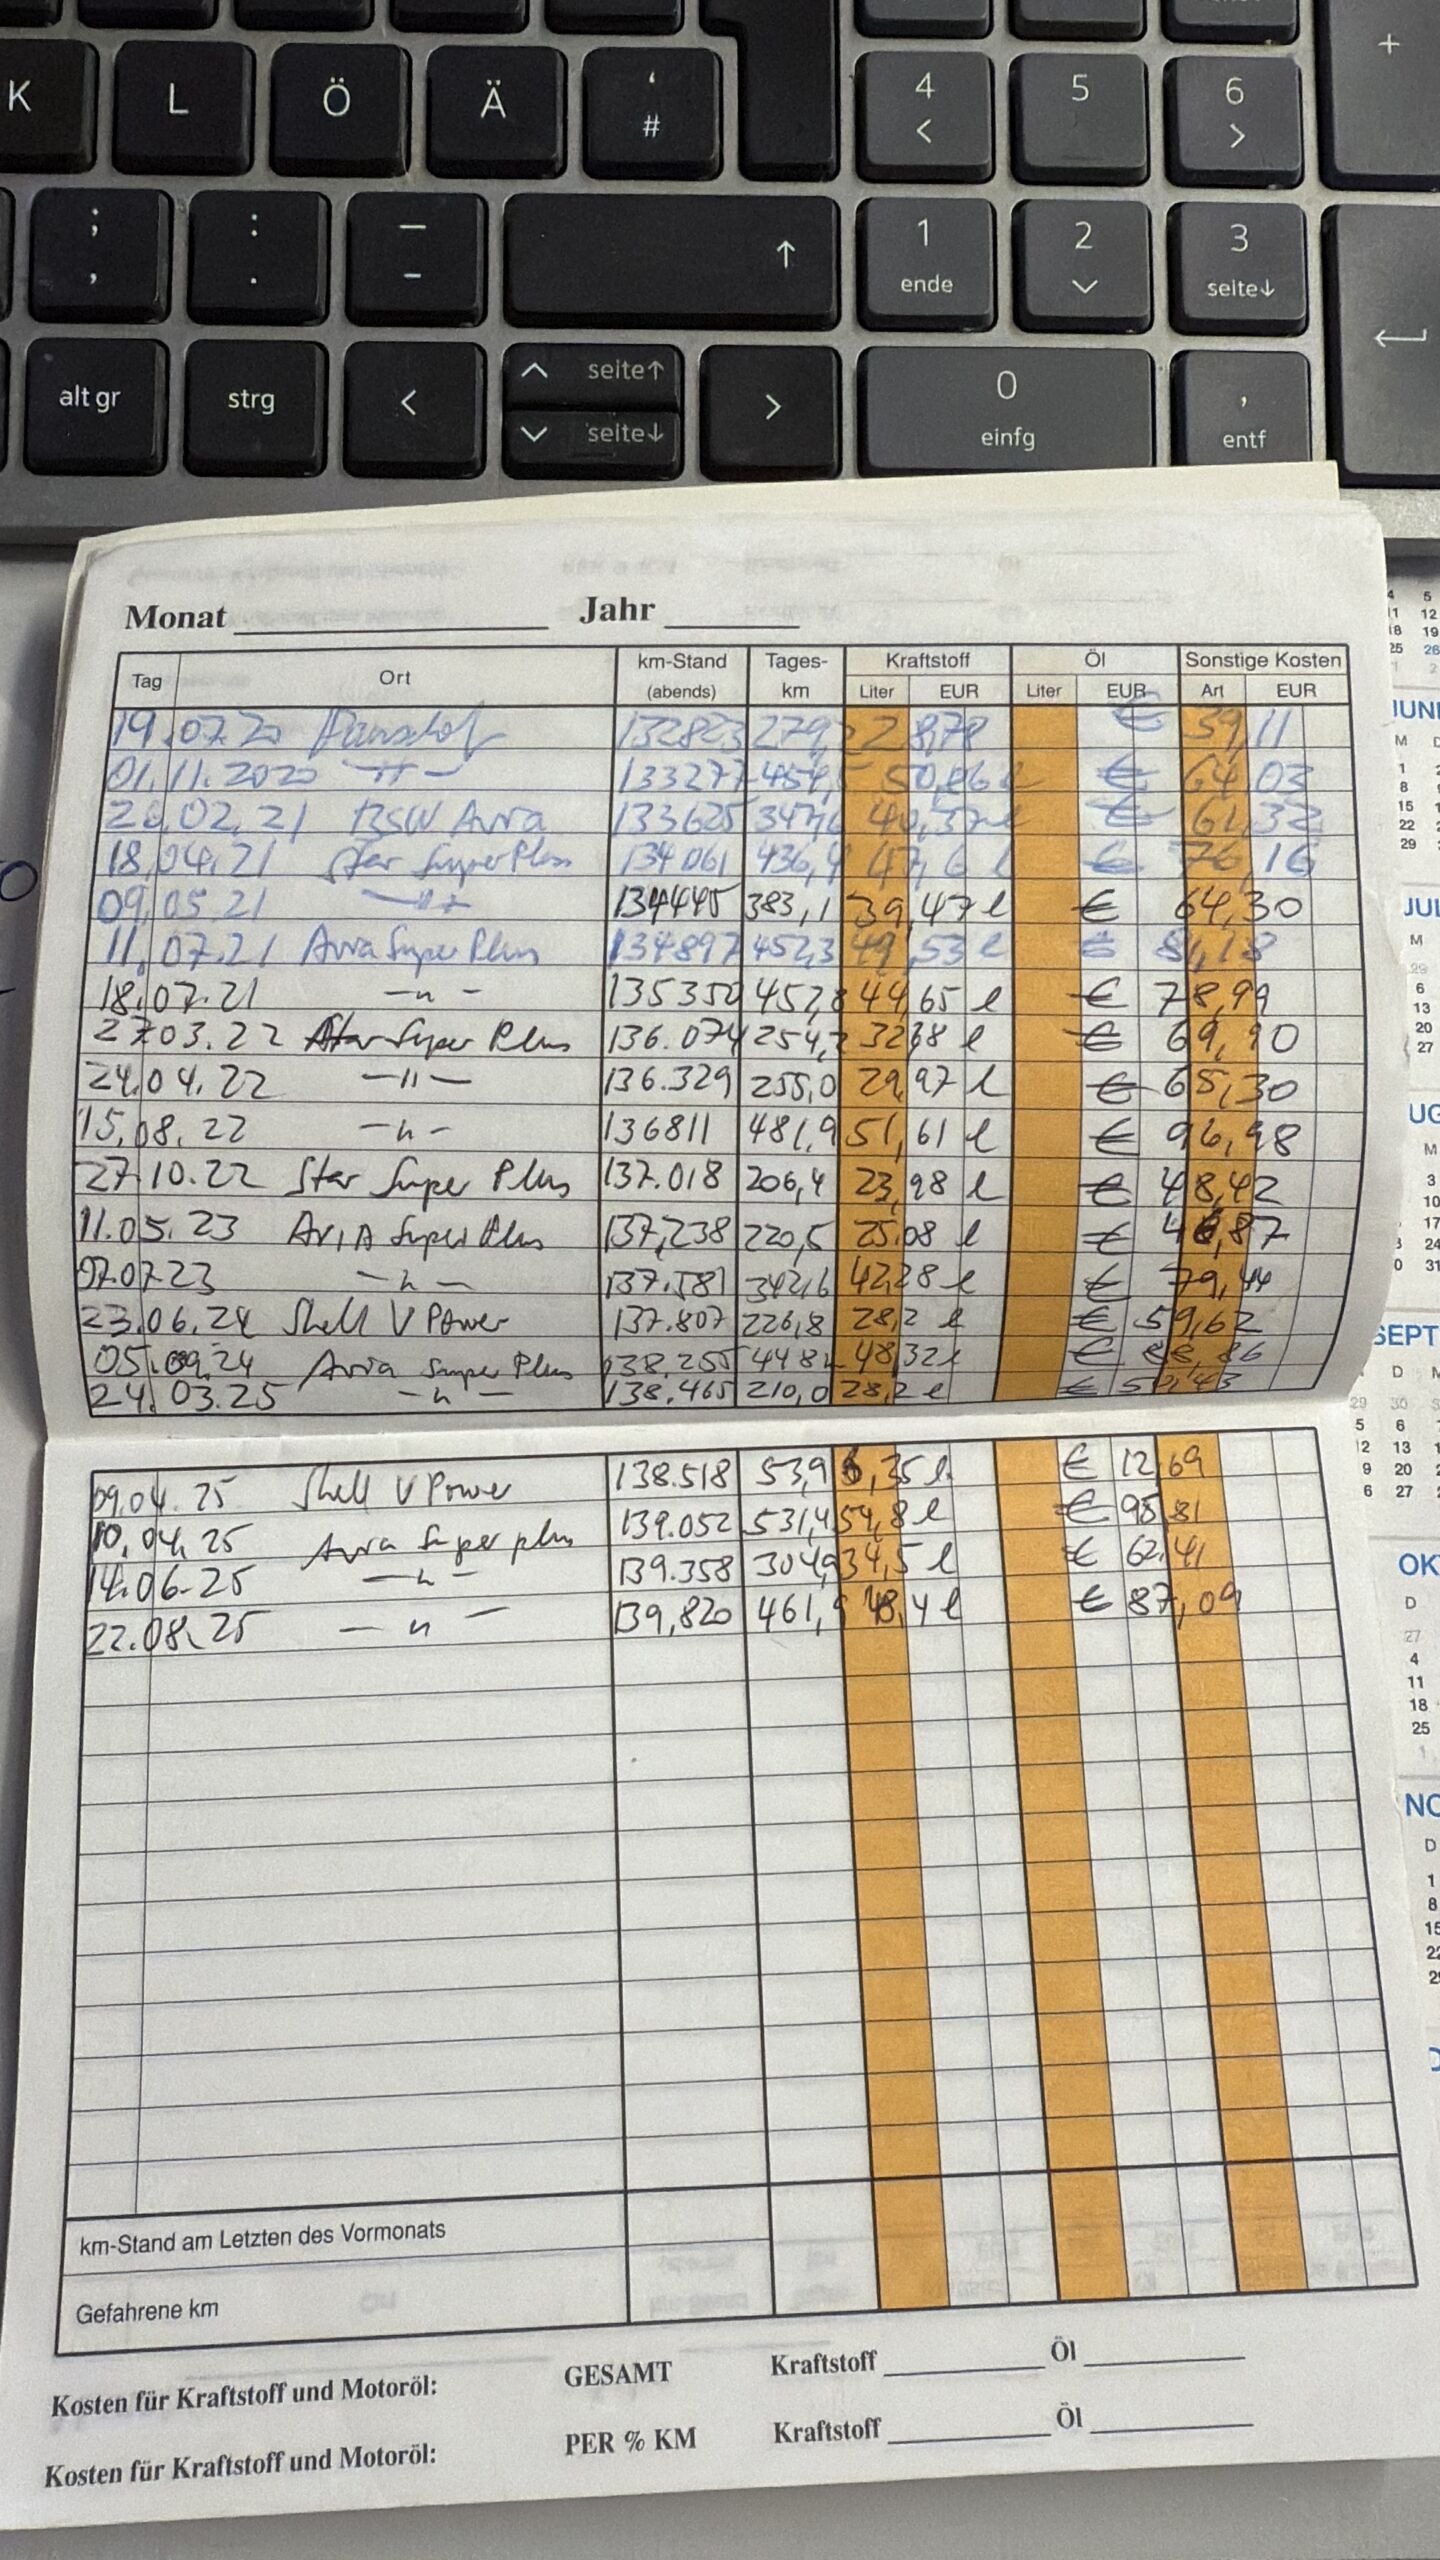 K L Ö Ä ' # 4 < 5 6 > +
; , : . — – ↑ 1 ende 2 3 seite↓
alt gr strg < seite↑ seite↓ > 0 einfg , entf
Monat Jahr
Tag Ort km-Stand (abends) Tages-km Kraftstoff Öl Sonstige Kosten
Liter EUR Liter EUR Art EUR
19.07.20 132823 279, 28,78 € 39,11
01.11.2020 —"— 133277 454,5 50,06 l € 64,03
20.02.21 BSW Avia 133625 347,6 40,37 l € 61,32
18.04.21 Star Super Plus 134061 436,4 47,6 l € 76,16
09.05.21 —"— 134445 383,1 39,47 l € 64,30
11.07.21 Avia Super Plus 134897 452,3 49,53 l € 81,18
18.07.21 —"— 135350 452,8 44,65 l € 78,99
27.03.22 Star Super Plus 136.074 254,7 32,38 l € 69,90
24.04.22 —"— 136.329 255,0 29,97 l € 65,30
15.08.22 —"— 136811 481,9 51,61 l € 96,98
27.10.22 Star Super Plus 137.018 206,4 23,98 l € 48,42
11.05.23 AVIA Super Plus 137,238 220,5 25,08 l € 46,87
07.07.23 —"— 137.581 342,6 42,28 l € 79,44
23.06.24 Shell V Power 137.807 226,8 28,2 l € 59,62
05.09.24 Avia Super Plus 138.255 448,2 48,32 l € 88,86
24.03.25 —"— 138.465 210,0 28,2 l € 52,43
09.04.25 Shell V Power 138.518 53,9 6,35 l € 12,69
10.04.25 Avia Super plus 139.052 531,4 54,8 l € 95,81
14.06.25 —"— 139.358 304,9 34,5 l € 62,41
22.08.25 —"— 139,820 461,9 48,4 l € 87,09
km-Stand am Letzten des Vormonats
Gefahrene km
Kosten für Kraftstoff und Motoröl: GESAMT Kraftstoff Öl
Kosten für Kraftstoff und Motoröl: PER % KM Kraftstoff Öl
JUNI
SEPT